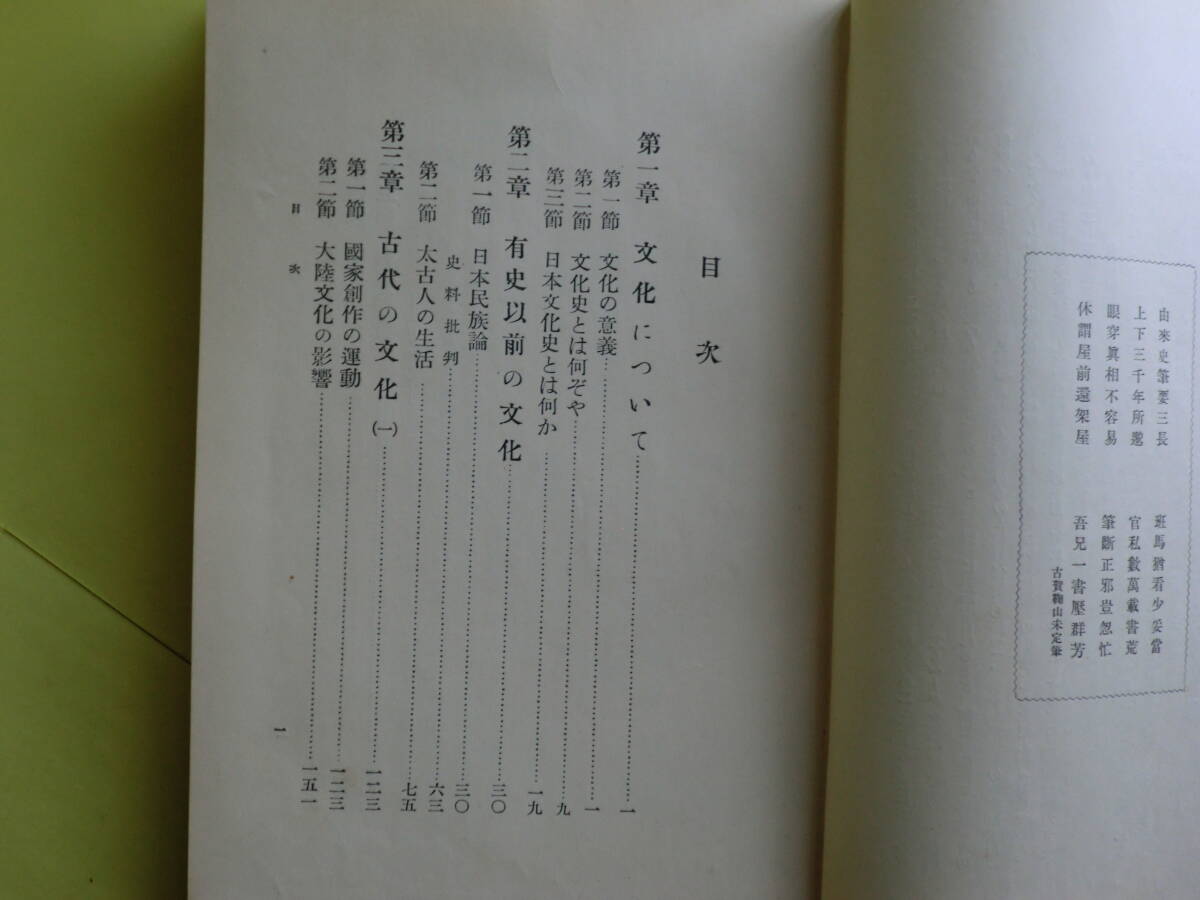 由來史筆要三長　班馬猶看少妥當
上下三千年所邈　官私數萬載書荒
眼穿眞相不容易　筆斷正邪豈怱忙
休謂屋前還架屋　吾兄一書壓群芳
古賀鞠山未定筆
目次
第一章 文化について……一
第一節 文化の意義……一
第二節 文化史とは何ぞや……九
第三節 日本文化史とは何か……一九
第二章 有史以前の文化……三〇
第一節 日本民族論……三〇
史料批判……六三
第二節 太古人の生活……七五
第三章 古代の文化(一)……一二三
第一節 國家創作の運動……一二三
第二節 大陸文化の影響……一五一
目次 一